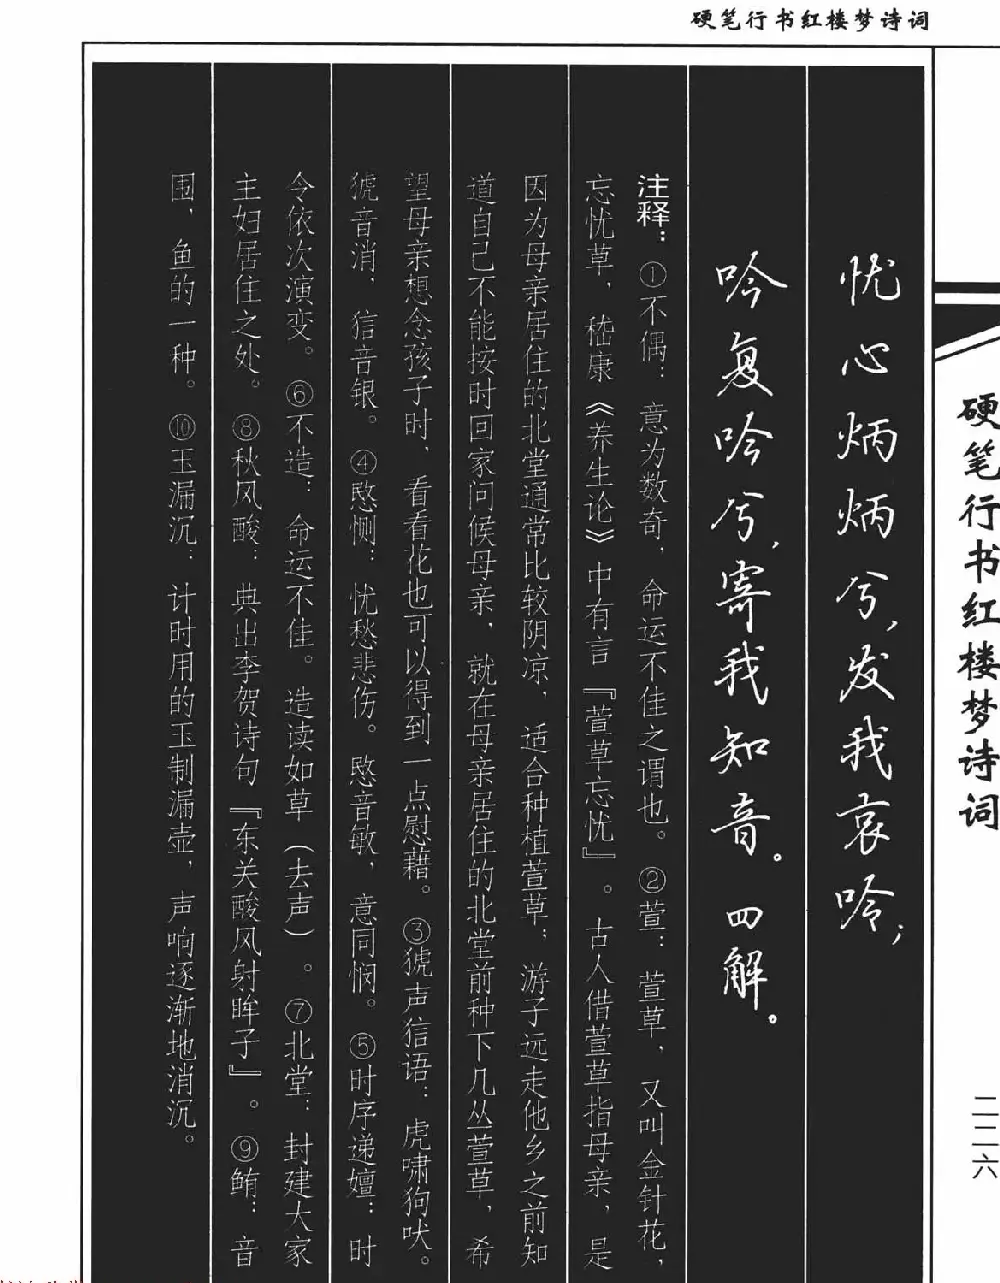 硬笔行书红楼梦诗词
忧心炳炳兮,发我哀吟;
吟复吟兮,寄我知音。四解。
注释:①不偶:意为数奇,命运不佳之谓也。②萱:萱草,又叫金针花,
忘忧草,嵇康《养生论》中有言『萱草忘忧』。古人借萱草指母亲,是
因为母亲居住的北堂通常比较阴凉,适合种植萱草;游子远走他乡之前知
道自己不能按时回家问候母亲,就在母亲居住的北堂前种下几丛萱草,希
望母亲想念孩子时,看看花也可以得到一点慰藉。③猇声狺语:虎啸狗吠。
猇音消,狺音银。④愍恻:忧愁悲伤。愍音敏,意同悯。⑤时序递嬗:时
令依次演变。⑥不造:命运不佳。造读如草(去声)。⑦北堂:封建大家
主妇居住之处。⑧秋风酸:典出李贺诗句『东关酸风射眸子』。⑨鲔:音
围,鱼的一种。⑩玉漏沉:计时用的玉制漏壶,声响逐渐地消沉。
硬笔行书红楼梦诗词
二二六